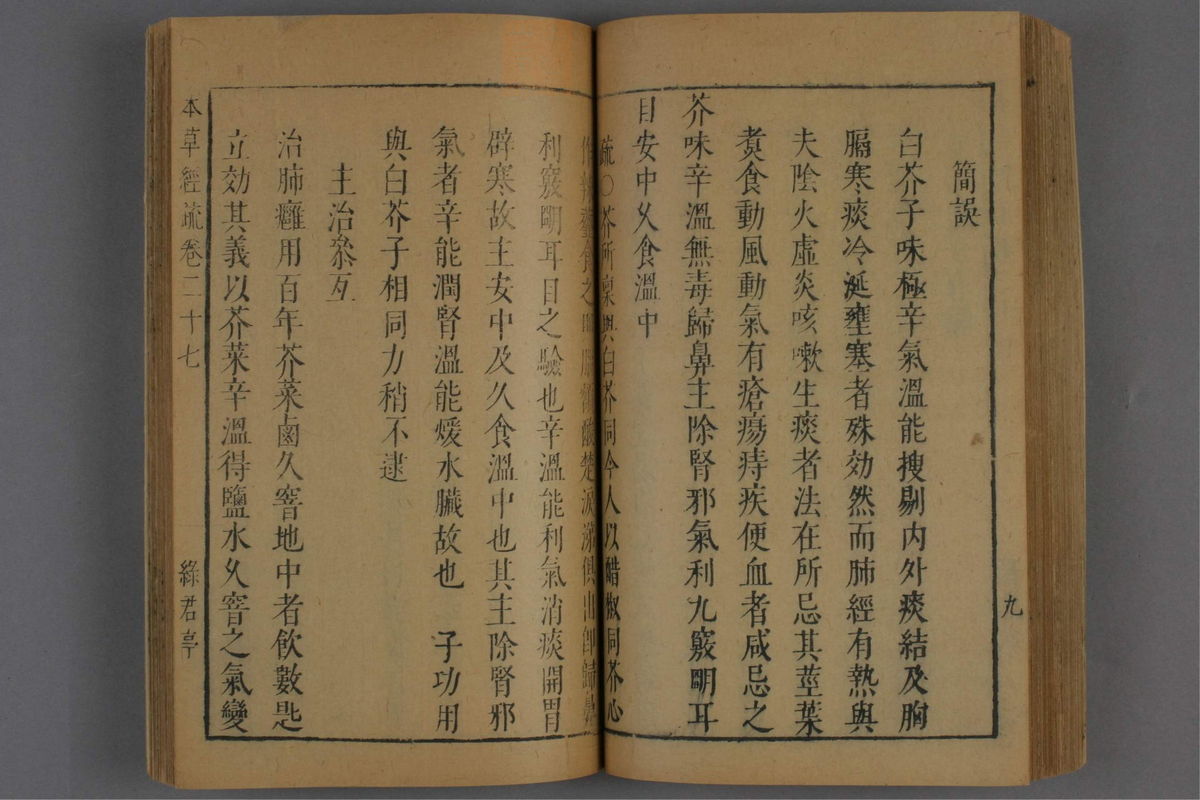 九
簡誤
白芥子味極辛氣溫能搜剔内外痰結及胸
膈寒痰冷涎壅塞者殊効然而肺經有熱與
夫陰火虛炎咳嗽生痰者法在所忌其莖葉
煑食動風動氣有瘡瘍痔疾便血者咸忌之
芥味辛溫無毒歸鼻主除腎邪氣利九竅明耳
目安中久食溫中
疏○芥所禀與白芥同今人以醋㧣同芥心
作辣虀食之 淚涕俱出卽歸鼻
利竅明耳目之驗也辛溫能利氣消痰開胃
辟寒故主安中及久食溫中也其主除腎邪
氣者辛能潤腎溫能煖水臟故也 子功用
與白芥子相同力稍不逮
主治叅互
治肺癰用百年芥菜鹵久窨地中者飮數匙
立効其義以芥菜辛溫得鹽水久窨之氣變
本草經疏卷二十七
綠君亭